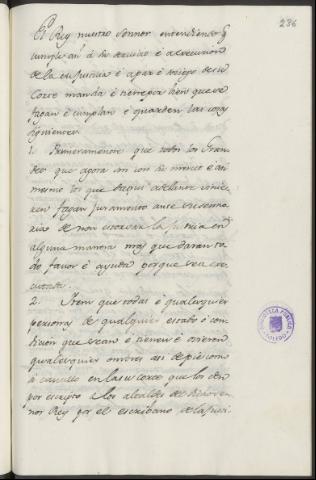 236
El Rey nuestro Sennor entendiendo q̃
cumple ansi á su servicio é á execucion
de la su justicia é á paz é sosiego de su
Corte manda é tiene por bien que se
fagan é cumplan é guarden las cosas
siguientes.
1. Primeramente que todos los Gran
des que agora son con su merced é asi
mesmo los que daqui adelante vinie
ren fagan juramento ante su senno
ria de non estorvar la justicia en
alguna manera mas que daran to
do favor é ayuda porque sea exe
cutada.
2. Item que todas é qualesquier
personas de qualquier estado é con
dicion que sean é tienen é tovieren
qualesquier ombres asi de pie como
á cavallo en la su Corte que los den
por escripto á los alcaldes del dicho sen
nor Rey por el escribano de la justi
BIBLIOTECA PUBLICA
TOLEDO